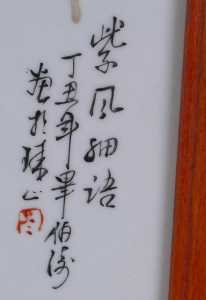 紫風細語
丁丑年畢伯濤
畫於珠山